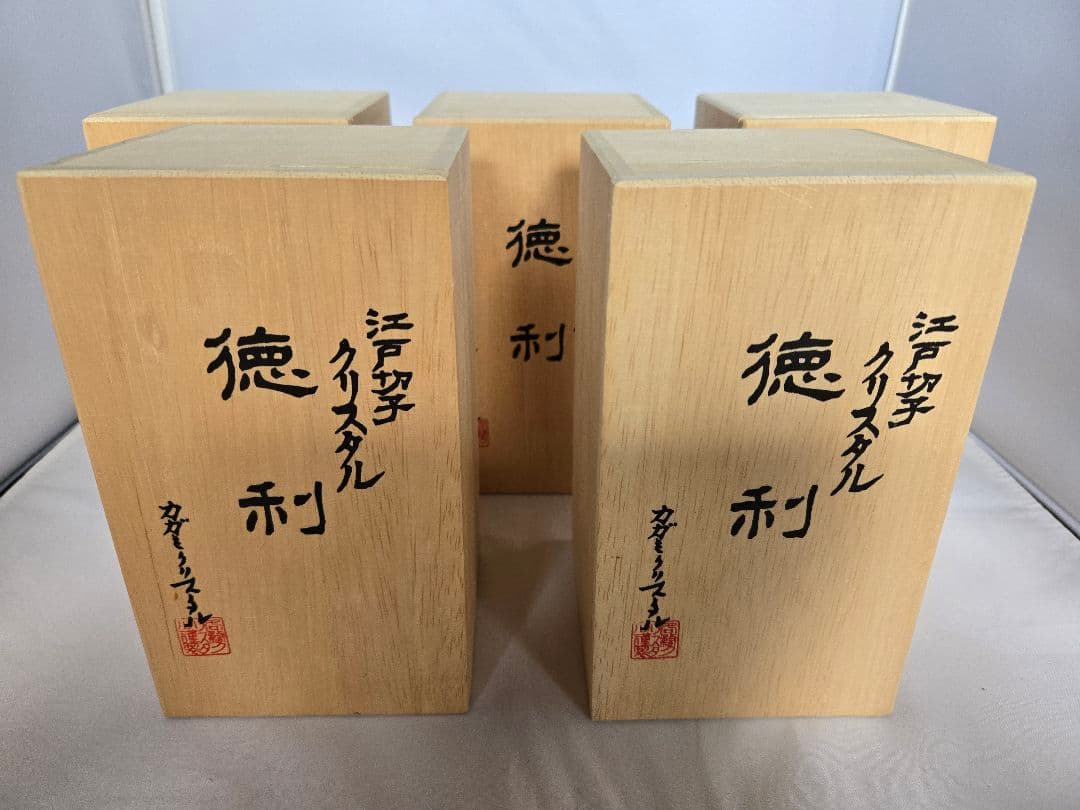 江戸切子
クリスタル
徳利
カガミクリスタル
徳利
江戸切子
クリスタル
徳利
カガミクリスタル